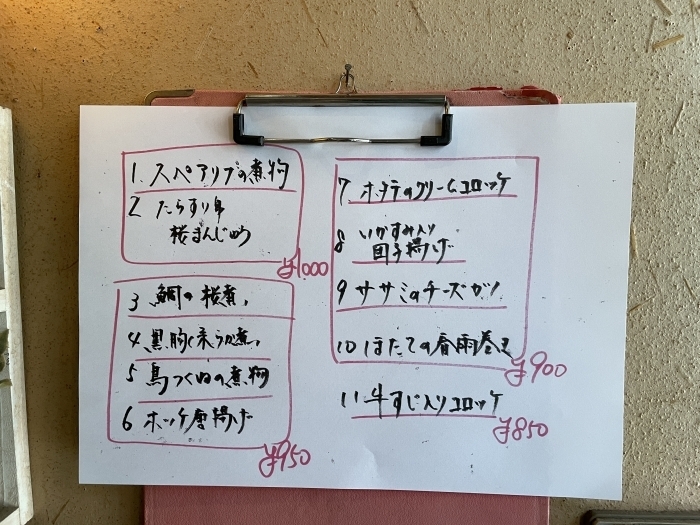 1. スペアリブの煮物
2 たらすり身
桜まんじゅう
¥1000
3 鯛の桜煮
4 黒胡
煮
5 鳥つくねの煮物
6 ホッケ唐揚げ
¥950
7 ホタテのクリームコロッケ
8 いかすみ入り
団子揚げ
9 ササミのチーズカツ
10 ほたての春雨巻き
¥900
11. 牛すじ入りコロッケ
¥850